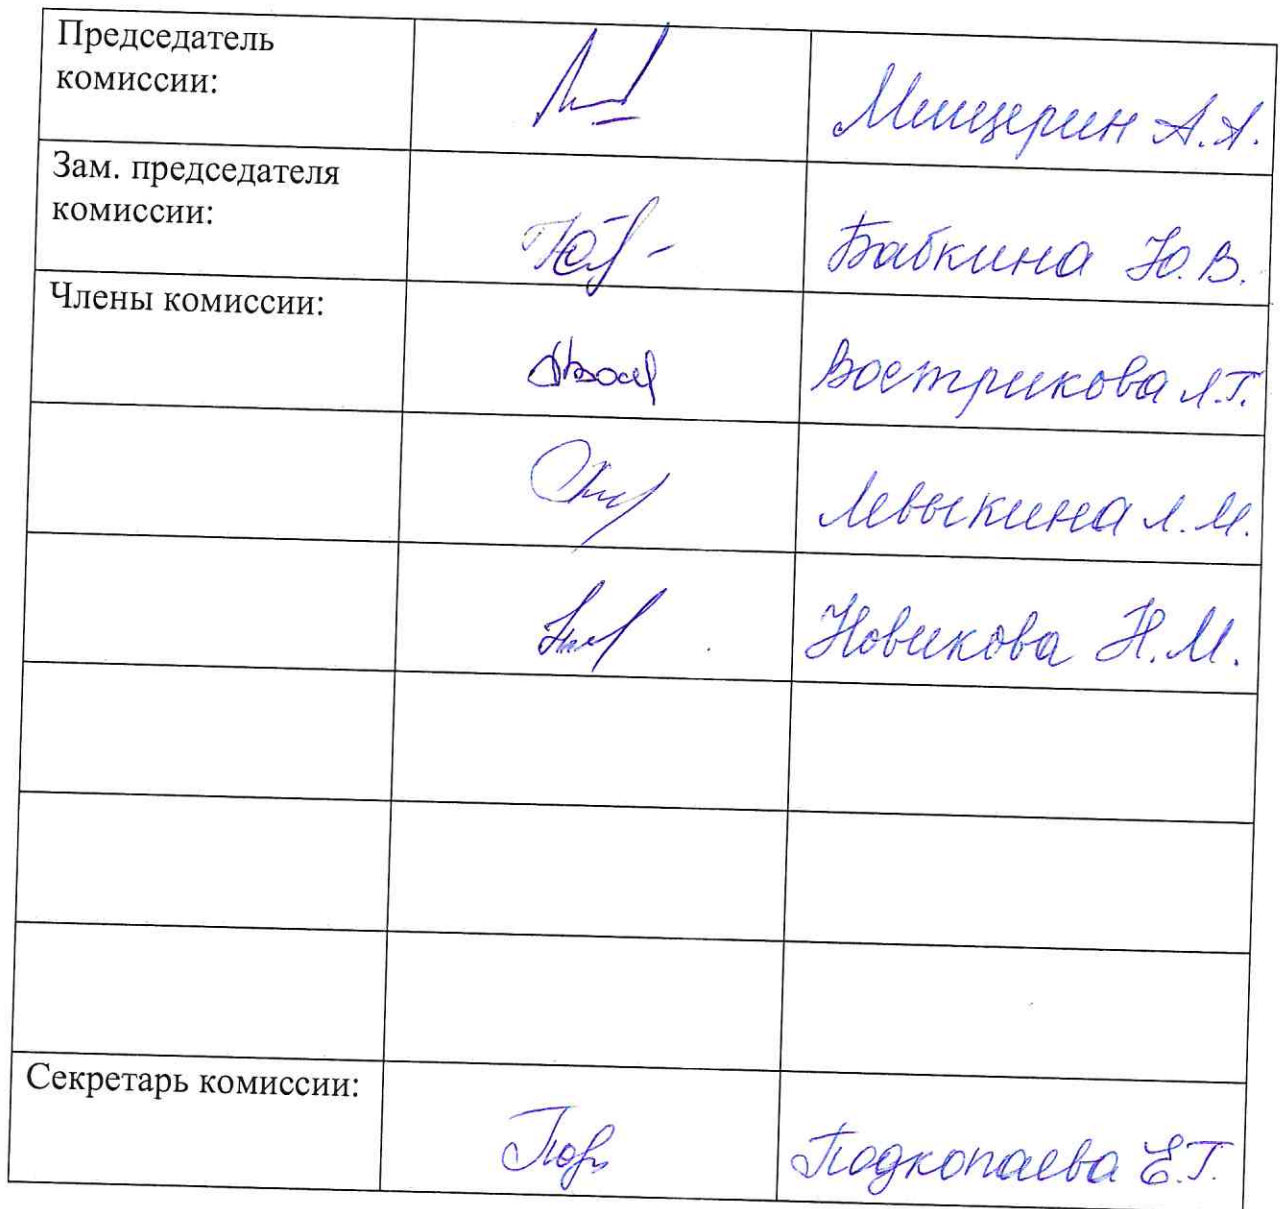 Председатель
комиссии:
Мищерин А.А.
Зам. председателя
комиссии:
Бабкина Ю.В.
Члены комиссии:
Вострикова Л.Г.
Левыкина Л.М.
Новикова Н.М.
Секретарь комиссии:
Подкопаева Е.Г.